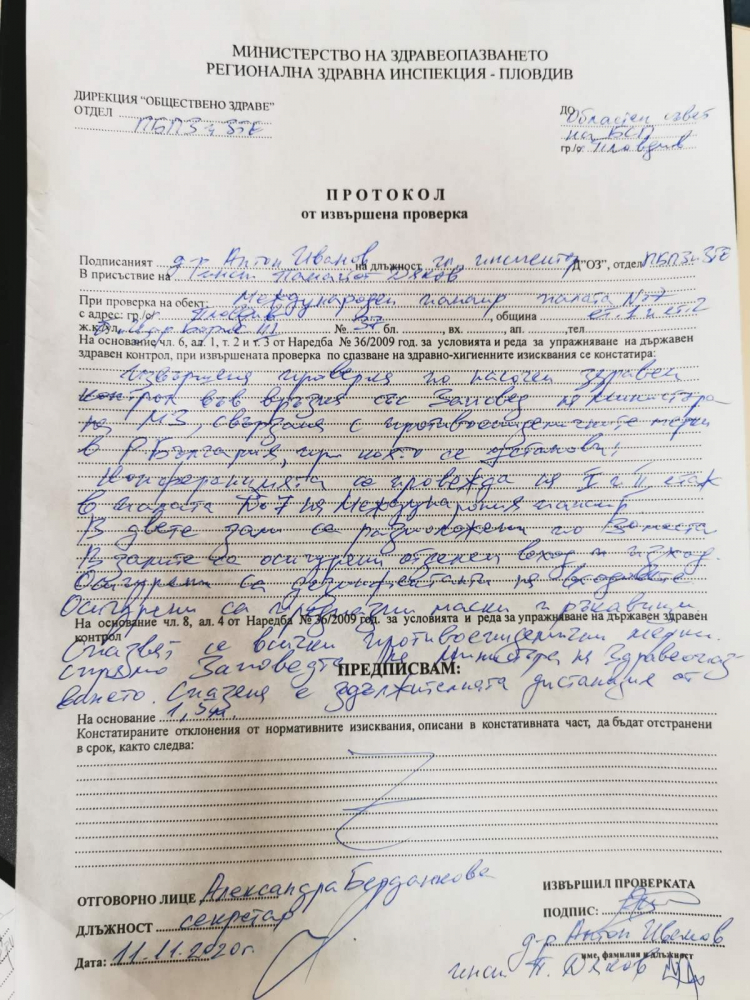 МИНИСТЕРСТВО НА ЗДРАВЕОПАЗВАНЕТО
РЕГИОНАЛНА ЗДРАВНА ИНСПЕКЦИЯ - ПЛОВДИВ
ДИРЕКЦИЯ "ОБЩЕСТВЕНО ЗДРАВЕ"
ОТДЕЛ ПБПЗ и ЗТЕ
ДО Областен съвет
на БСП
гр./с. Пловдив
ПРОТОКОЛ
от извършена проверка
Подписаният д-р Антон Иванов на длъжност гл. инспектор Д"ОЗ", отдел ПБПЗ и ЗТЕ
В присъствие на Дяков
При проверка на обект: Международен панаир палата №7
с адрес: гр./с. Пловдив, община ет. 1 и ет. 2
ж.к./ул. Цар Борис III № 37 бл. , вх. , ап. , тел.
На основание чл. 6, ал. 1, т. 2 и т. 3 от Наредба № 36/2009 год. за условията и реда за упражняване на държавен
здравен контрол, при извършената проверка по спазване на здравно-хигиенните изисквания се констатира:
Извършена проверка по насочен здравен
контрол във връзка със Заповед на министъра
на МЗ, свързана с противоепидемичните мерки
в Р България, при която се установи:
Конференцията се провежда на I и II етаж
в палата №7 на Международния панаир
В двете зали са разположени по 30 места
В залите са осигурени отделен вход и изход.
Осигурени са дезинфектанти на входовете
Осигурени са предпазни маски и ръкавици
На основание чл. 8, ал. 4 от Наредба № 36/2009 год. за условията и реда за упражняване на държавен здравен
контрол
Спазват се всички противоепидемични мерки.
спрямо Заповедта на министъра на здравеопаз-
ПРЕДПИСВАМ:
ването. Спазена е задължителната дистанция от
На основание 1,5 м.
Констатираните отклонения от нормативните изисквания, описани в констативната част, да бъдат отстранени
в срок, както следва:
ОТГОВОРНО ЛИЦЕ Александра
ДЛЪЖНОСТ секретар
Дата: 11.11.2020г.
ИЗВЪРШИЛ ПРОВЕРКАТА
ПОДПИС:
д-р Антон Иванов
име, фамилия и длъжност
инсп. П. Дяков